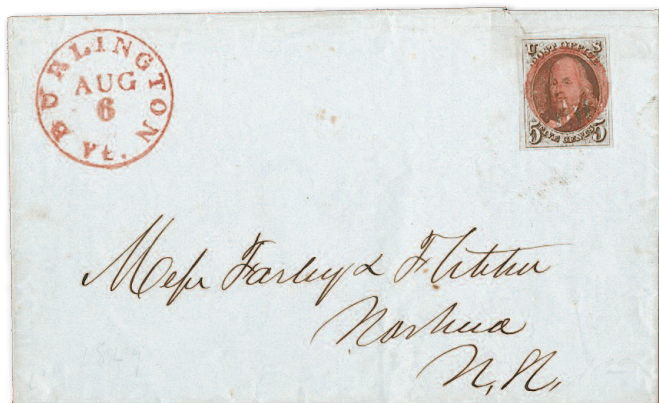 BURLINGTON
AUG
6
Vt.
U S
POST OFFICE
5 FIVE CENTS 5
Messr Farley & Fletcher
Nashua
N.H.